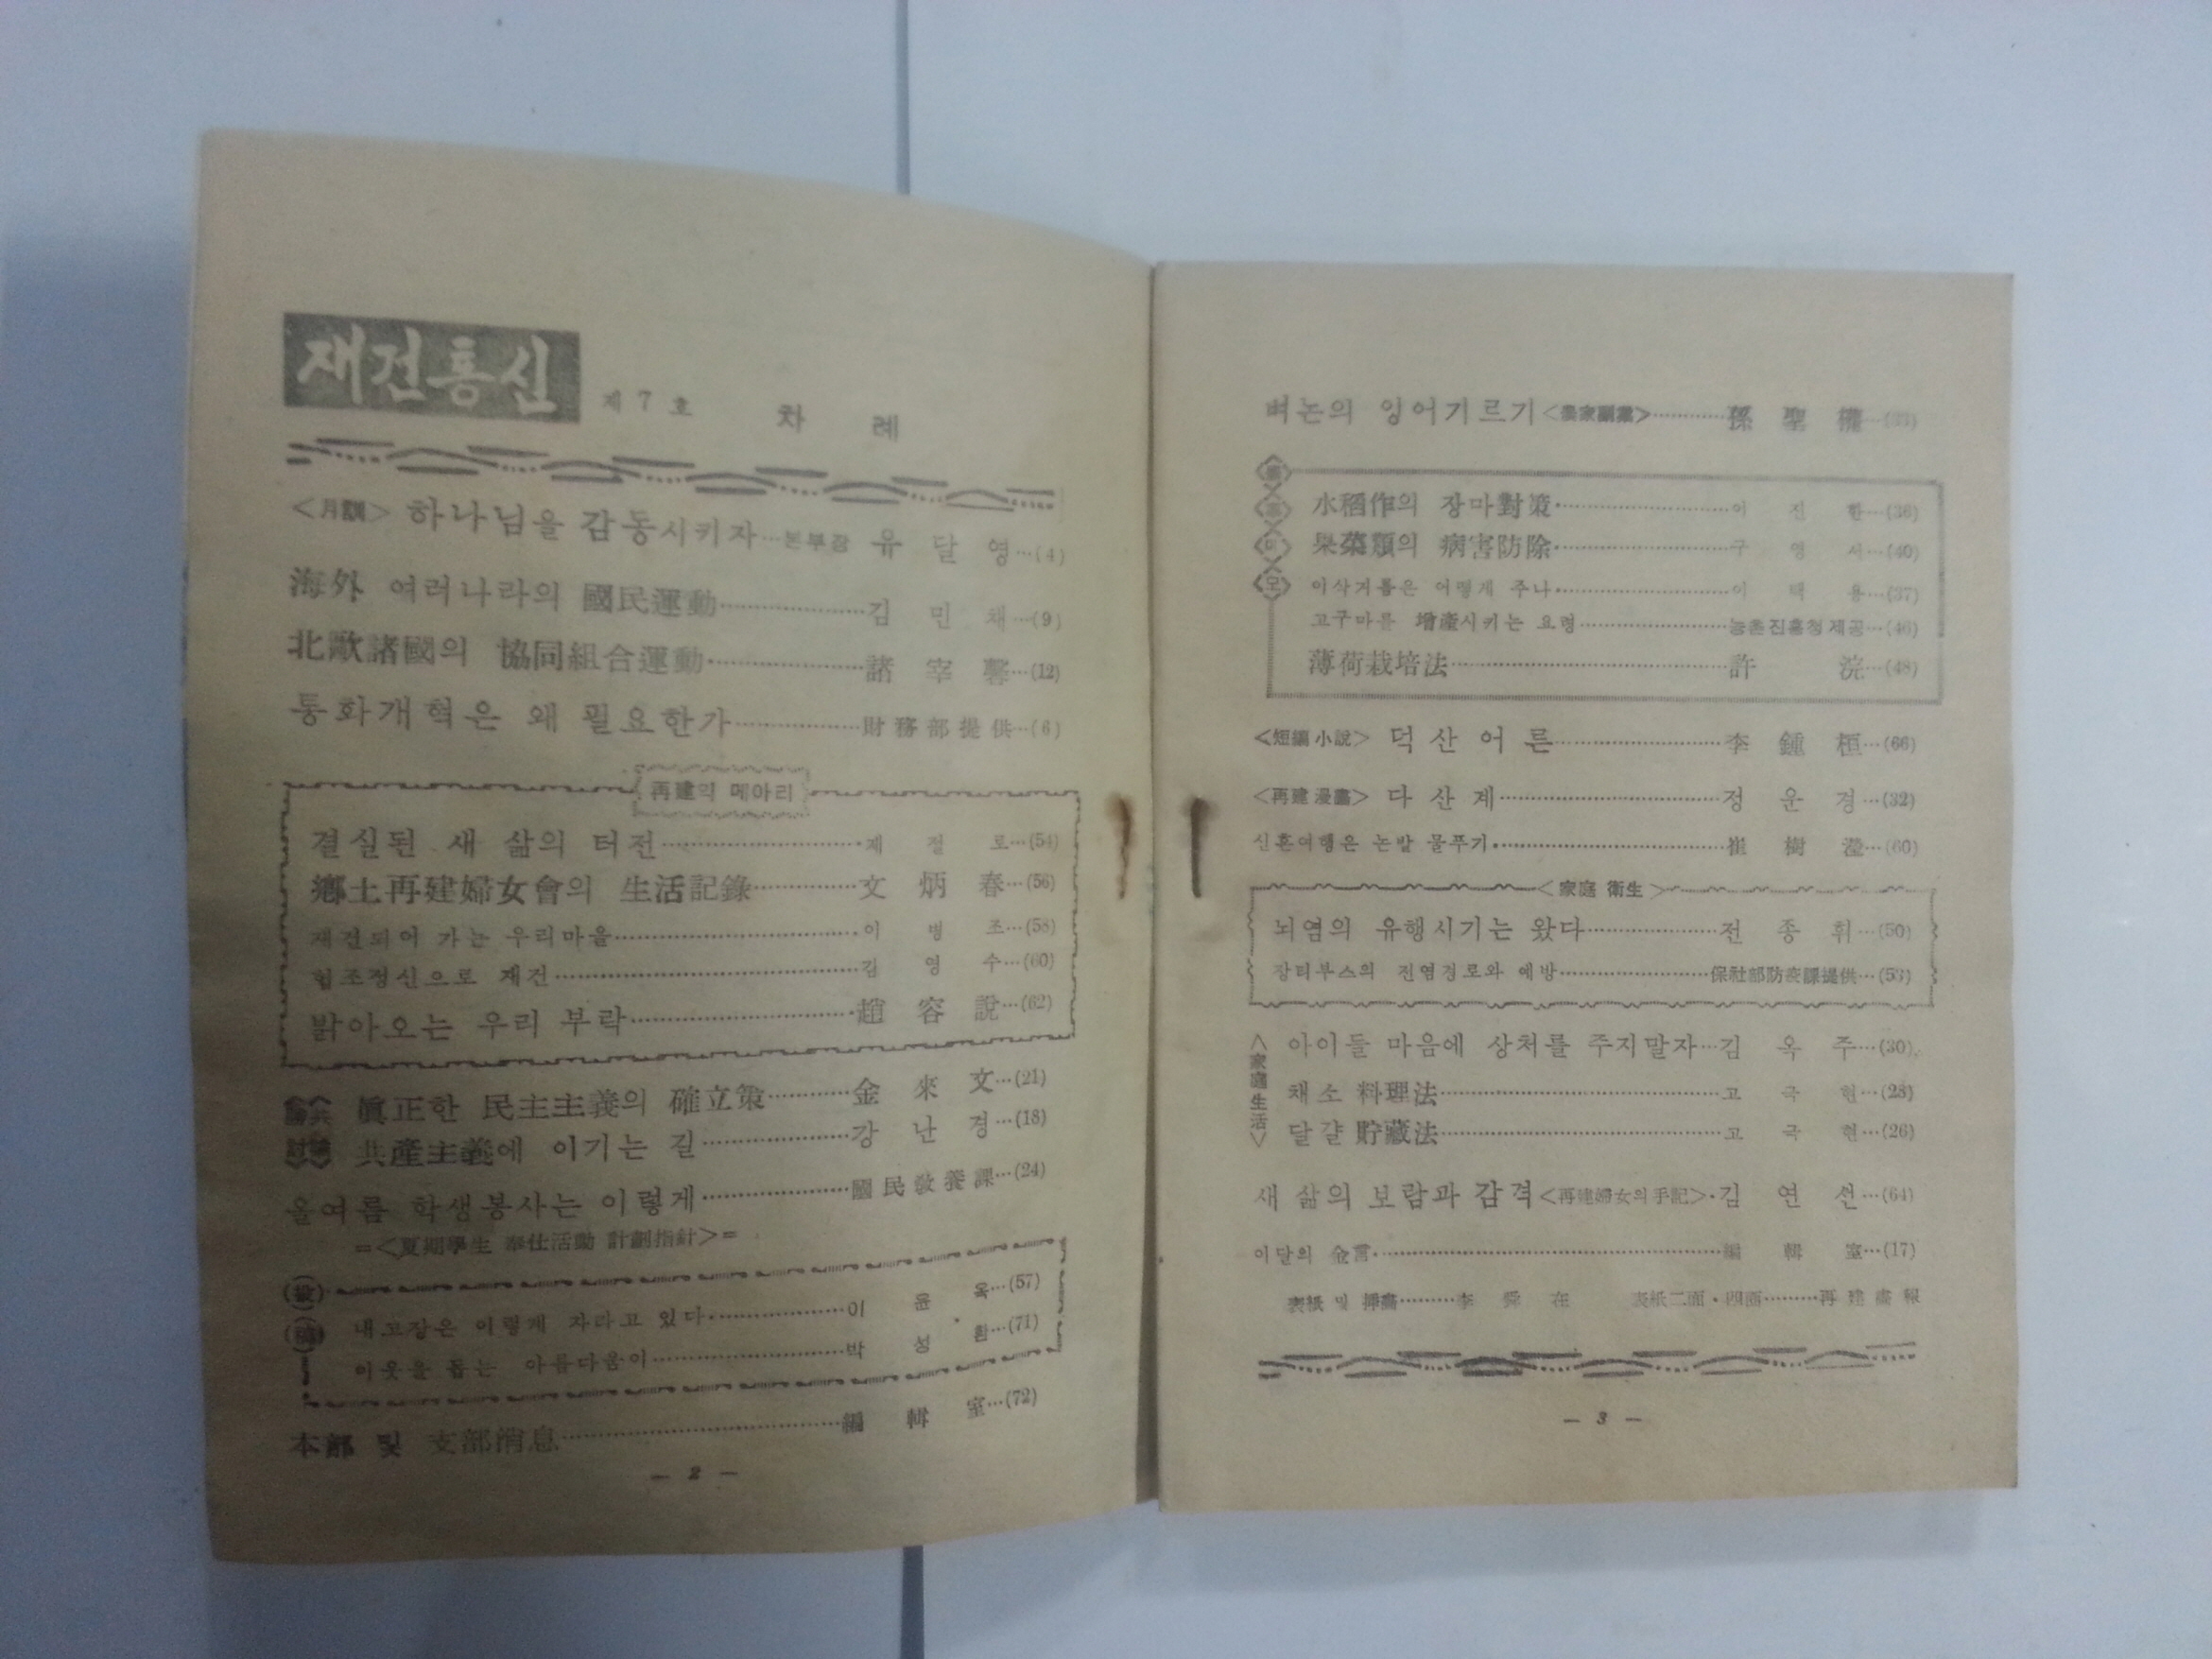 재건통신 제7호 차례
<月訓> 하나님을 감동시키자…본부장 유달영…(4)
海外 여러나라의 國民運動……김민채…(9)
北歐諸國의 協同組合運動……諸宰馨…(12)
통화개혁은 왜 필요한가……財務部提供…(6)
再建의 메아리
결실된 새 삶의 터전……제절로…(54)
鄕土再建婦女會의 生活記錄……文炳春…(56)
재건되어 가는 우리마을……이병조…(58)
협조정신으로 재건……김영수…(60)
밝아오는 우리 부락……趙容說…(62)
眞正한 民主主義의 確立策……金來文…(21)
共產主義에 이기는 길……강난경…(18)
올여름 학생봉사는 이렇게……國民敎養課…(24)
=<夏期學生 奉仕活動 計劃指針>=
내고장은 이렇게 자라고 있다……이윤옥…(57)
이웃을 돕는 아름다움이……박성환…(71)
本部 및 支部消息……編輯室…(72)
— 2 —
벼논의 잉어기르기<農家副業>……孫聖
水稻作의 장마對策……이신환…(36)
果菜類의 病害防除……구영서…(40)
이삭거름은 어떻게 주나……이택용…(37)
고구마를 增產시키는 요령……농촌진흥청제공…(46)
薄荷栽培法……許浣…(48)
<短編小說> 덕산어른……李鍾桓…(66)
<再建漫畵> 다산계……정운경…(32)
신혼여행은 논밭 물푸기……崔樹瀅…(60)
<家庭 衛生>
뇌염의 유행시기는 왔다……전종휘…(50)
장티부스의 전염경로와 예방……保社部防疫課提供…(53)
<家庭生活>
아이들 마음에 상처를 주지말자…김옥주…(30)
채소 料理法……고극현…(28)
달걀 貯藏法……고극현…(26)
새 삶의 보람과 감격<再建婦女의手記>·김연선…(64)
이달의 金言……編輯室…(17)
表紙 및 揷畵……李舜在 表紙二面·四面……再建畵報
— 3 —